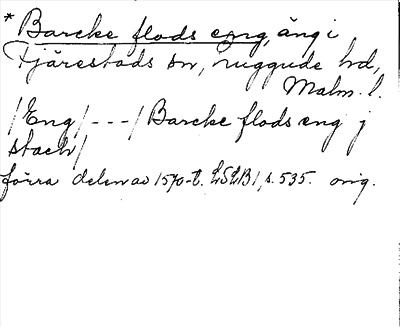 * Barcke flods eng, äng i
Tjärestads sn, Luggude hd,
Malm. l.
/Eng/ - - - / Barcke flods eng j
stach/
förra delen av 1570-t. LSLB1, s. 535. orig.